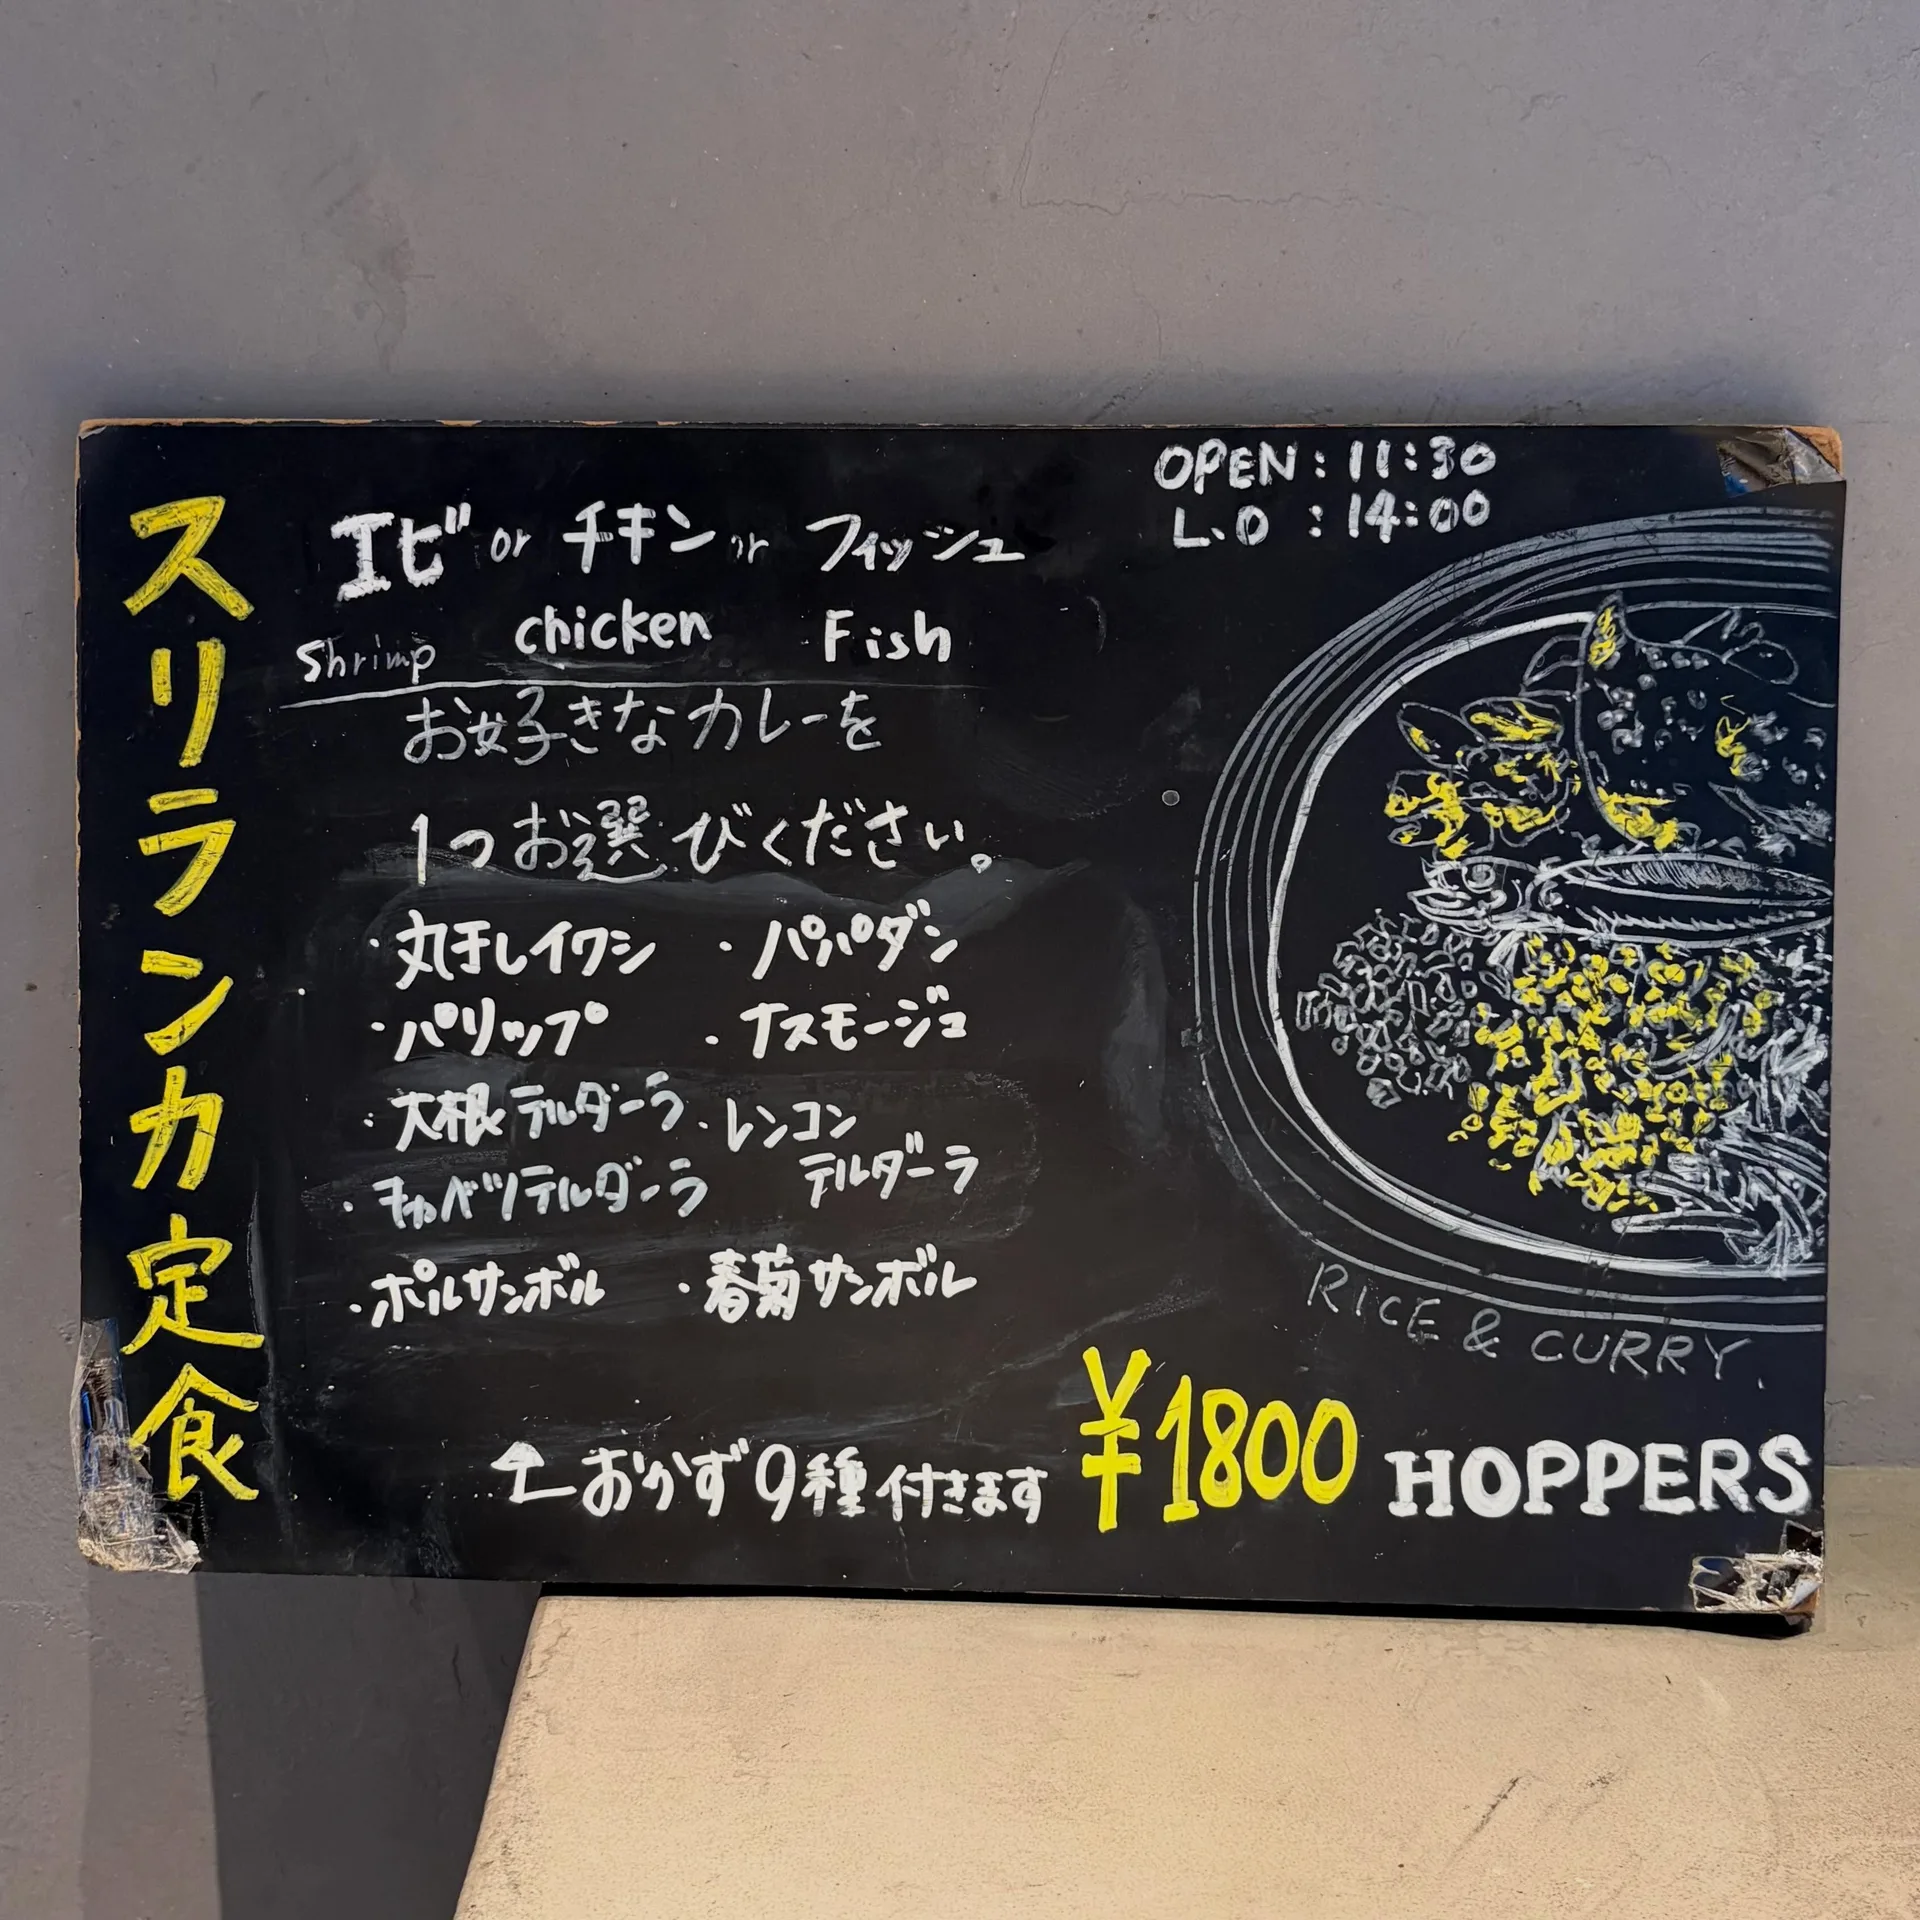 OPEN : 11:30
L.O : 14:00
スリランカ定食
エビ or チキン or フィッシュ
Shrimp chicken Fish
お好きなカレーを
1つお選びください。
・丸干しイワシ ・パパダン
・パリップ ・ナスモージュ
・大根テルダーラ ・レンコン
テルダーラ
・キャベツテルダーラ
・ポルサンボル ・春菊サンボル
RICE & CURRY.
おかず9種付きます ¥1800 HOPPERS